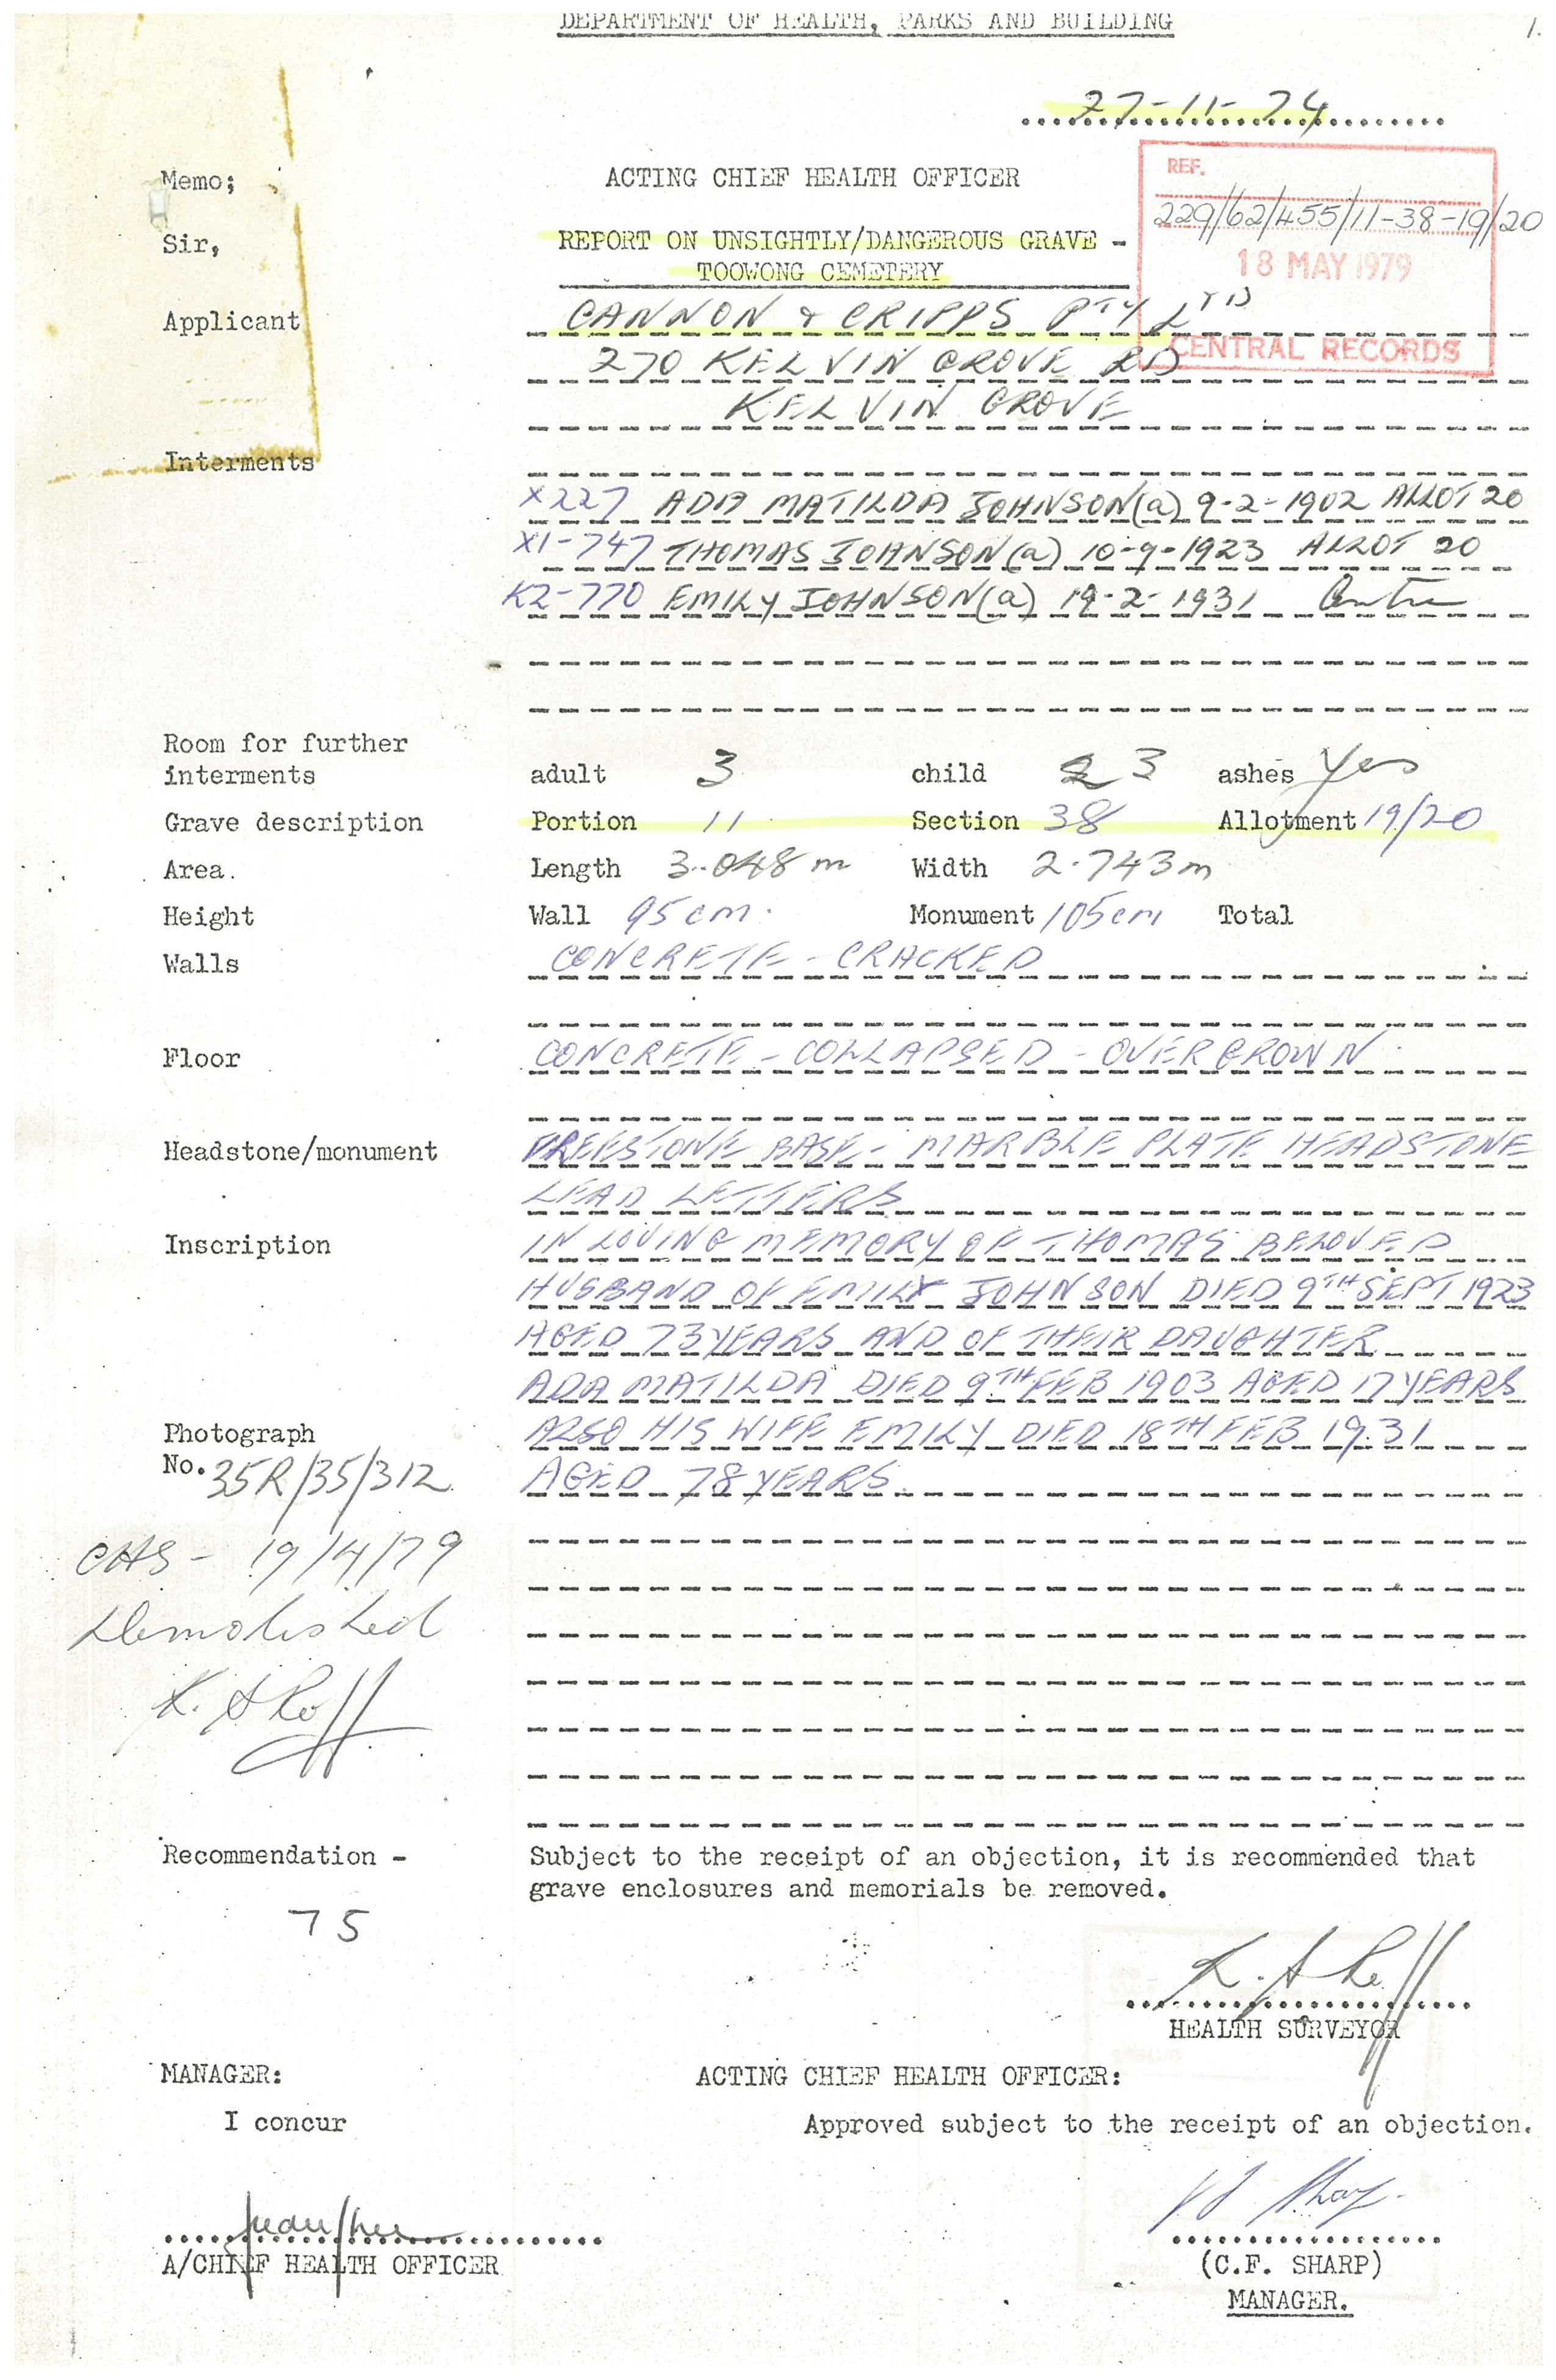 DEPARTMENT OF HEALTH, PARKS AND BUILDING
1.
27-11-74
Memo;
ACTING CHIEF HEALTH OFFICER
REF.
229/62/455/11-38-19/20
Sir,
REPORT ON UNSIGHTLY/DANGEROUS GRAVE -
TOOWONG CEMETERY
18 MAY 1979
Applicant
CANNON & CRIPPS PTY LTD
CENTRAL RECORDS
270 KELVIN GROVE RD
KELVIN GROVE
Interments
X227 ADA MATILDA JOHNSON(a) 9-2-1902 ALLOT 20
X1-747 THOMAS JOHNSON(a) 10-9-1923 ALLOT 20
K2-770 EMILY JOHNSON(a) 19-2-1931 Centre
Room for further
interments adult 3 child 3 ashes Yes
Grave description Portion 11 Section 38 Allotment 19/20
Area. Length 3.048 m Width 2.743m
Height Wall 95cm. Monument 105cm Total
Walls CONCRETE - CRACKED
Floor CONCRETE - COLLAPSED - OVERGROWN
Headstone/monument FREESTONE BASE - MARBLE PLATE HEADSTONE
LEAD LETTERS
Inscription IN LOVING MEMORY OF THOMAS BELOVED
HUSBAND OF EMILY JOHNSON DIED 9TH SEPT 1923
AGED 73 YEARS AND OF THEIR DAUGHTER
ADA MATILDA DIED 9TH FEB 1903 AGED 17 YEARS
Photograph ALSO HIS WIFE EMILY DIED 18TH FEB 1931
No. 35R/35/312 AGED 78 YEARS
CHS - 19/4/79
Demolished
Recommendation - Subject to the receipt of an objection, it is recommended that
grave enclosures and memorials be removed.
75
HEALTH SURVEYOR
MANAGER: ACTING CHIEF HEALTH OFFICER:
I concur Approved subject to the receipt of an objection.
A/CHIEF HEALTH OFFICER (C.F. SHARP)
MANAGER.